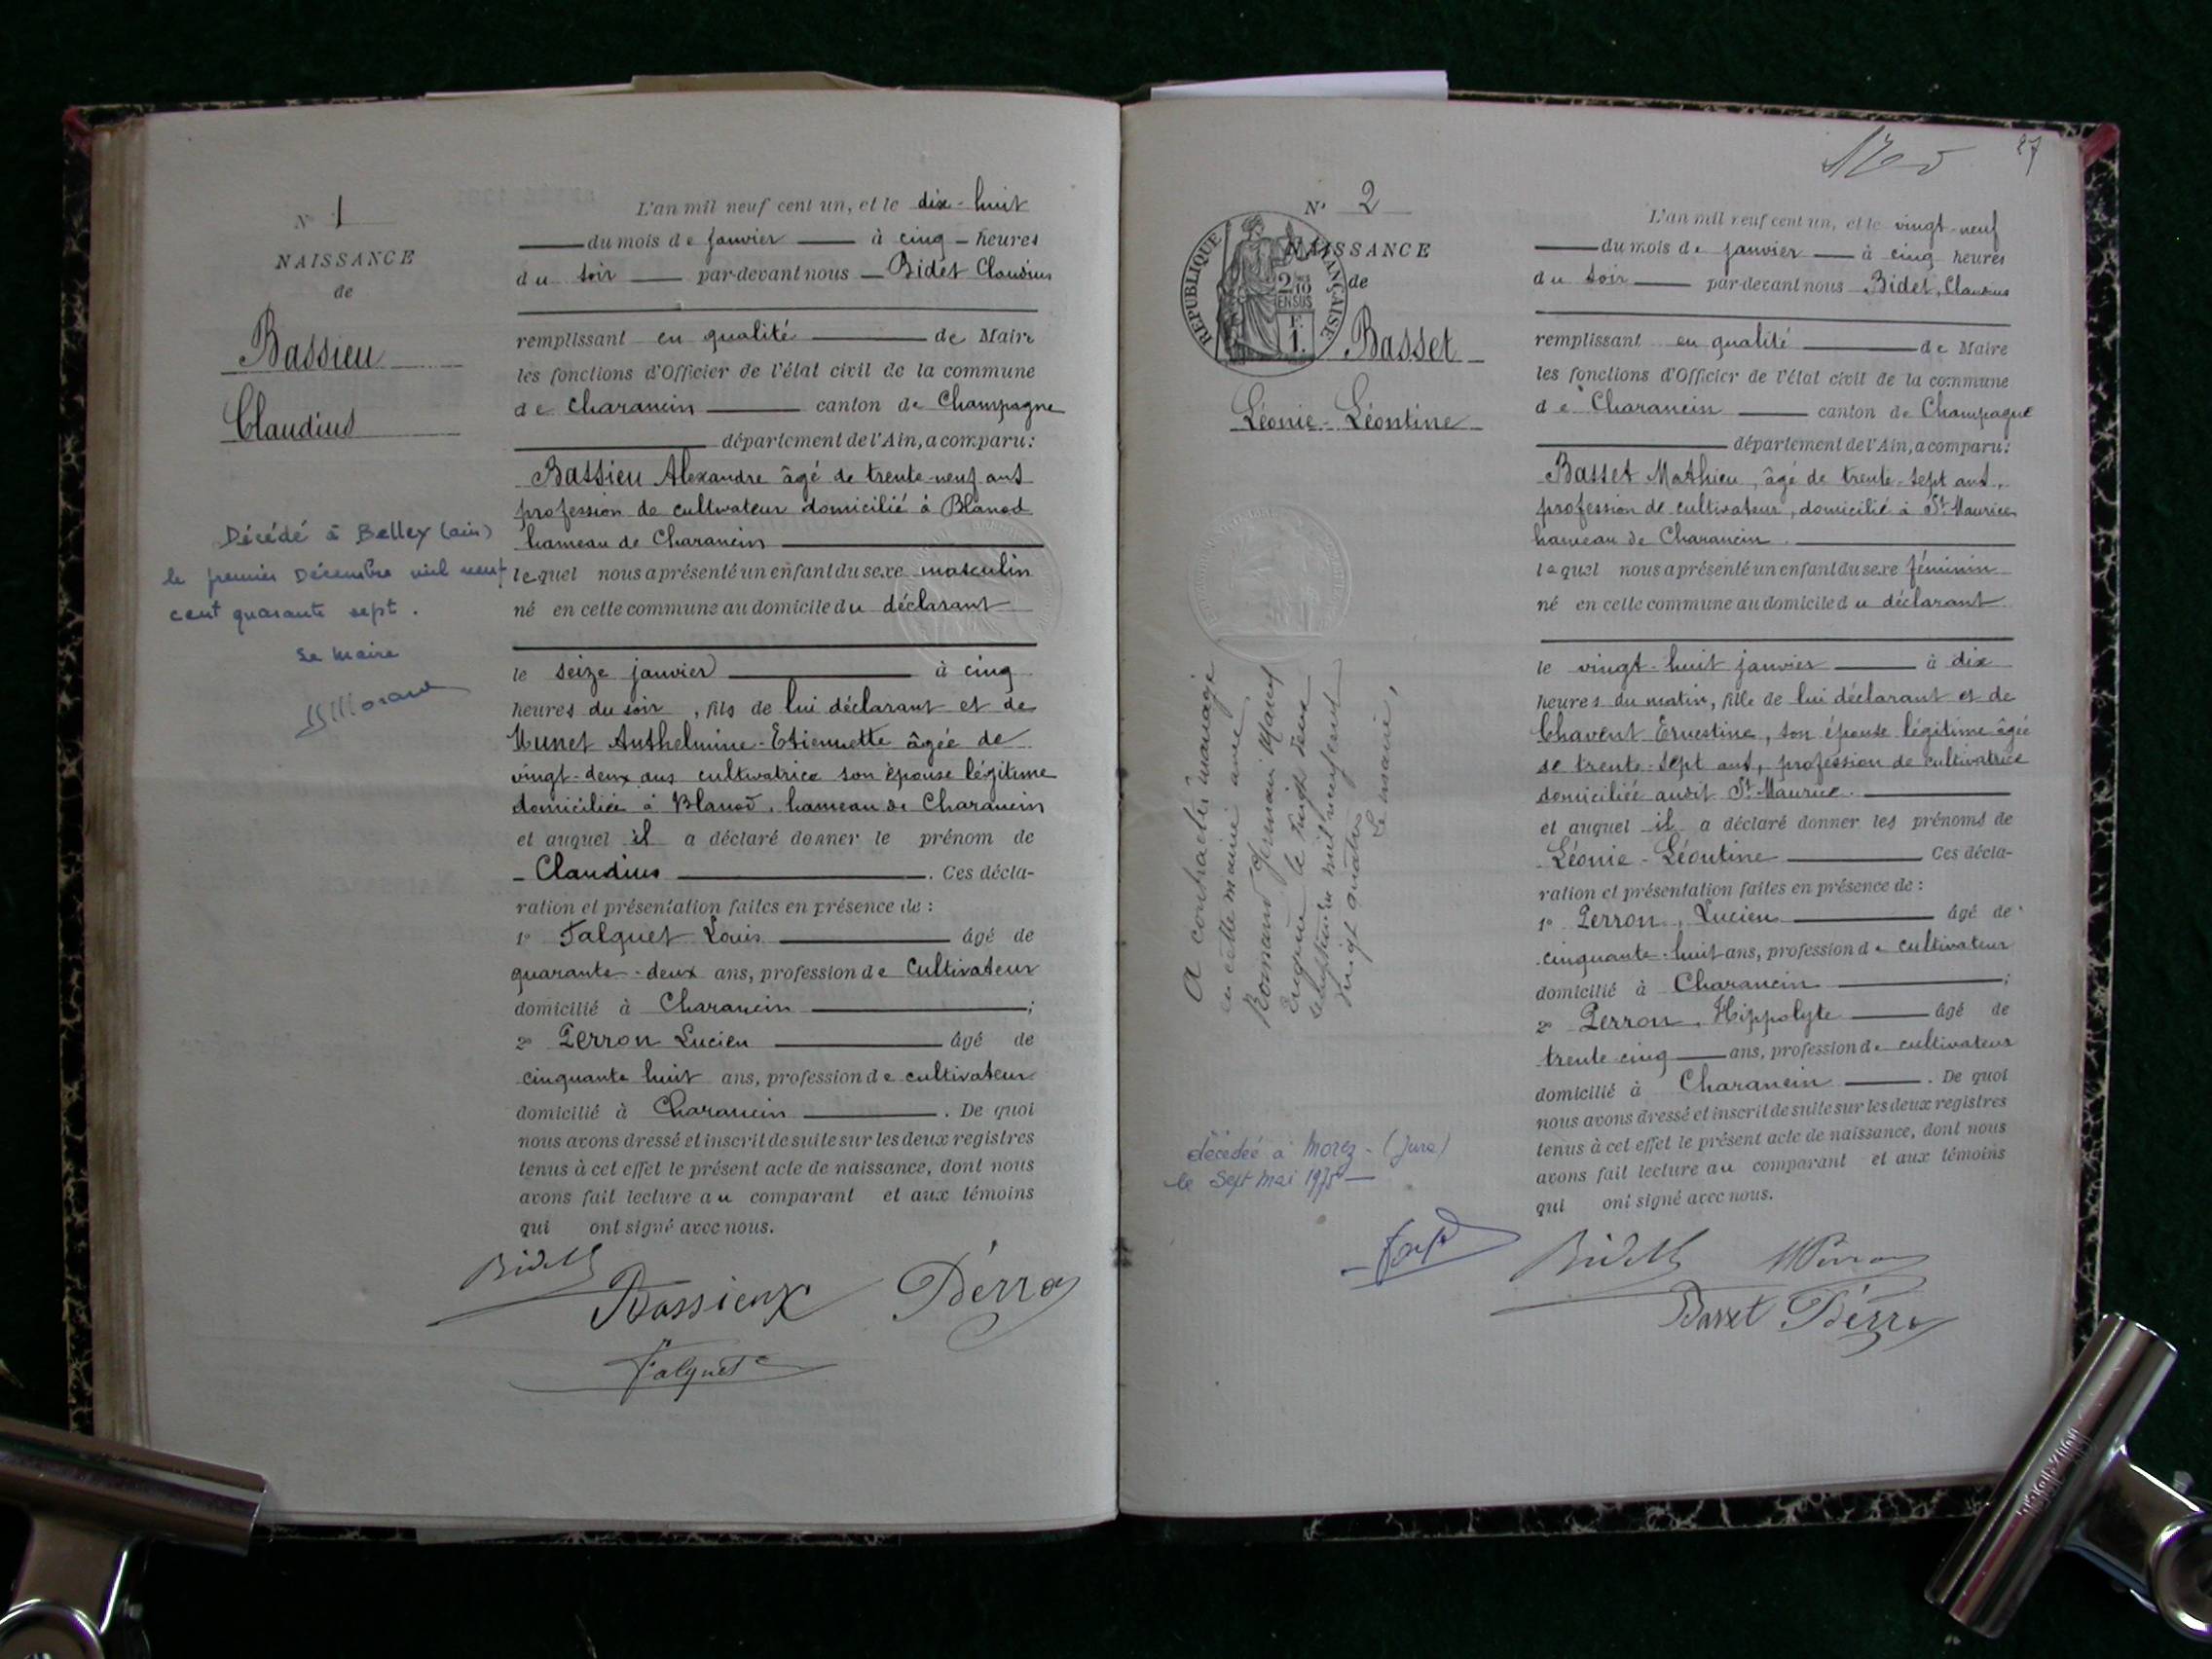 N° 1
NAISSANCE
de
Bassieu
Claudius
Décédé à Belley (ain)
le premier Décembre mil neuf
cent quarante sept.
Le Maire
L'an mil neuf cent un, et le dix-huit
du mois de janvier à cinq heures
du soir par-devant nous Bidet Claudius
remplissant en qualité de Maire
les fonctions d'Officier de l'état civil de la commune
de Charancin canton de Champagne
département de l'Ain, a comparu:
Bassieu Alexandre âgé de trente-neuf ans
profession de cultivateur domicilié à Blanod
hameau de Charancin
lequel nous a présenté un enfant du sexe masculin
né en cette commune au domicile du déclarant
le seize janvier à cinq
heures du soir, fils de lui déclarant et de
Munet Anthelmine-Etiennette âgée de
vingt-deux ans cultivatrice son épouse légitime
domiciliée à Blanod, hameau de Charancin
et auquel il a déclaré donner le prénom de
Claudius. Ces décla-
ration et présentation faites en présence de:
1° Falquet Louis âgé de
quarante-deux ans, profession de Cultivateur
domicilié à Charancin;
2° Perron Lucien âgé de
cinquante huit ans, profession de cultivateur
domicilié à Charancin. De quoi
nous avons dressé et inscrit de suite sur les deux registres
tenus à cet effet le présent acte de naissance, dont nous
avons fait lecture au comparant et aux témoins
qui ont signé avec nous.
Bidet
Bassieux Perron
Falquet
27
N° 2
RÉPUBLIQUE FRANÇAISE
2/10 EN SUS
1 F.
NAISSANCE
de
Basset
Léonie-Léontine
A contracté mariage
en cette mairie avec
Romand Germain
le vingt deux
septembre mil neuf cent
vingt quatre
Le maire,
décédée à Morez - (Jura)
le sept mai 1975
L'an mil neuf cent un, et le vingt-neuf
du mois de janvier à cinq heures
du soir par-devant nous Bidet, Claudius
remplissant en qualité de Maire
les fonctions d'Officier de l'état civil de la commune
de Charancin canton de Champagne
département de l'Ain, a comparu:
Basset Mathieu, âgé de trente-sept ans,
profession de cultivateur, domicilié à St Maurice
hameau de Charancin.
lequel nous a présenté un enfant du sexe féminin
né en cette commune au domicile du déclarant
le vingt-huit janvier à dix
heures du matin, fille de lui déclarant et de
Chavent Ernestine, son épouse légitime âgée
de trente-sept ans, profession de cultivatrice
domiciliée audit St Maurice.
et auquel il a déclaré donner les prénoms de
Léonie-Léontine Ces décla-
ration et présentation faites en présence de:
1° Perron, Lucien âgé de
cinquante-huit ans, profession de cultivateur
domicilié à Charancin;
2° Perron, Hippolyte âgé de
trente cinq ans, profession de cultivateur
domicilié à Charancin. De quoi
nous avons dressé et inscrit de suite sur les deux registres
tenus à cet effet le présent acte de naissance, dont nous
avons fait lecture au comparant et aux témoins
qui ont signé avec nous.
Bidet
Basset Perron